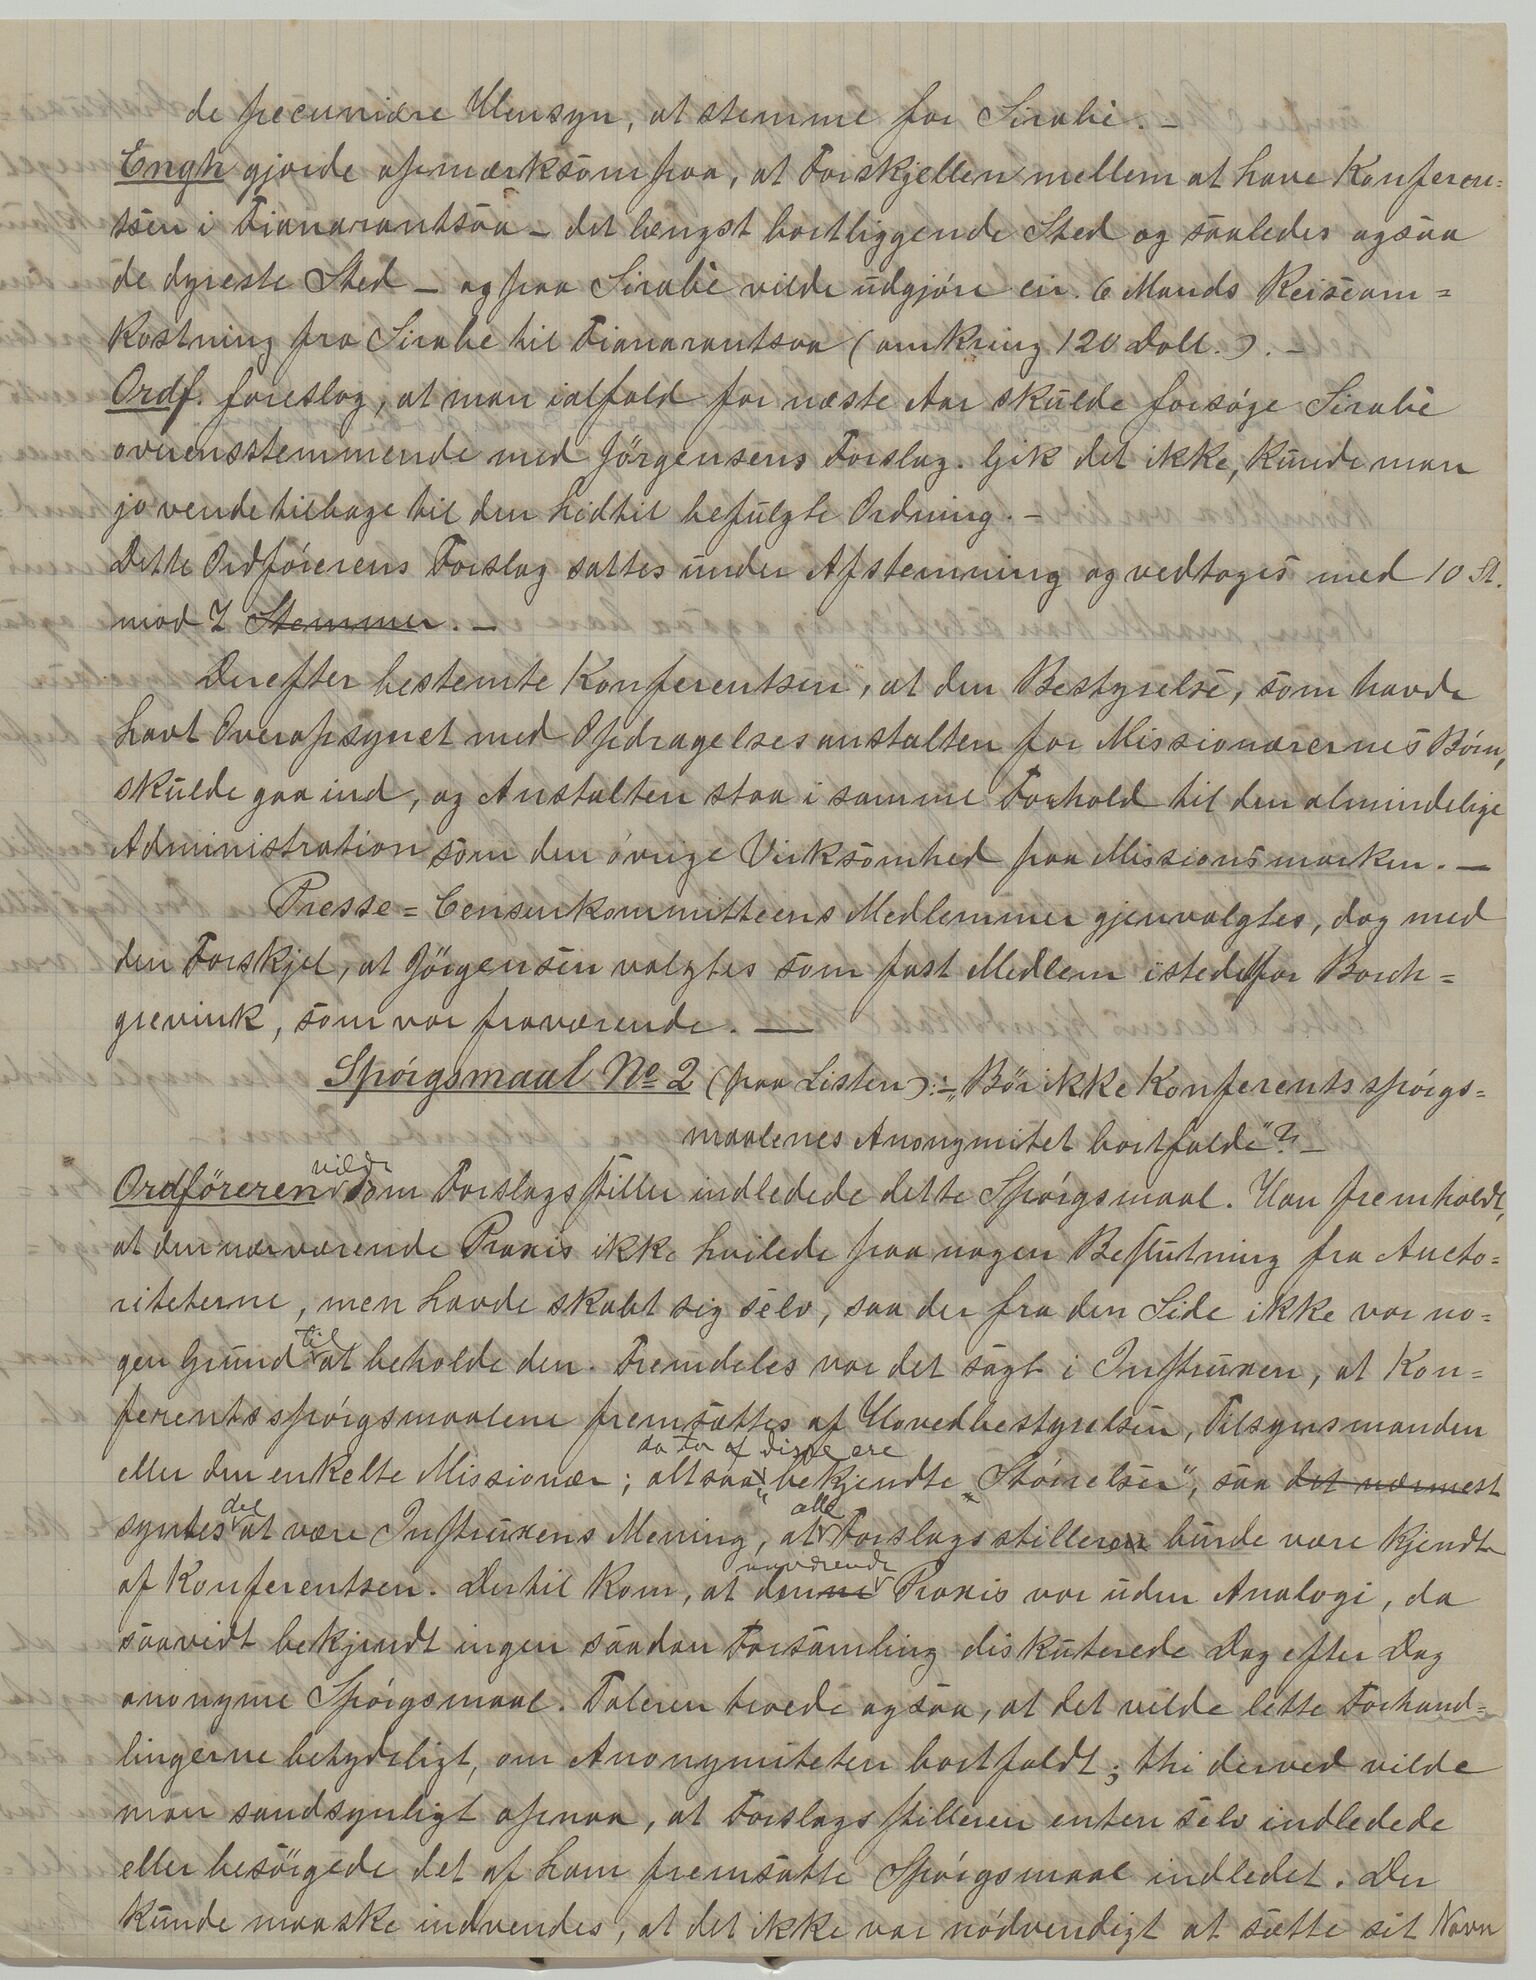 de pecuniære Hensyn, at stemme for Sirabè. –
Engh gjorde opmærksom paa, at Forskjellen mellem at have Konferen=
tsen i Fianarantsoa – det længst bortliggende Sted og saaledes ogsaa
de dyreste Sted – og paa Sirabè vilde udgjøre en 6 Mands Reiseom=
kostning fra Sirabe til Fianarantsoa (omkring 120 Doll.). –
Ordf. foreslog, at man ialfald for næste Aar skulde forsøge Sirabè
overensstemmende med Jörgensens Forslag. Gik det ikke, kunde man
jo vende tilbage til den hidtil befulgte Ordning. –
Dette Ordførerens Forslag sattes under Afstemning og vedtoges med 10 St.
mod 7 Stemmer. –
Derefter bestemte Konferentsen, at den Bestyrelse, som havde
havt Overopsynet med Opdragelsesanstalten for Missionærernes Børn,
skulde gaa ind, og Anstalten staa i samme Forhold til den almindelige
Administration som den øvrige Virksomhed paa Missionsmarken. –
Presse=Censurkommitteens Medlemmer gjenvalgtes, dog med
den Forskjel, at Jörgensen valgtes som fast Medlem istedetfor Borch=
grevink, som var fraværende. –
Spørgsmaal No 2 (paa Listen): – „Bör ikke Konferentsspørgs=
maalenes Anonymitet bortfalde"? –
vilde
Ordföreren som Forslagsstiller indledede dette Spørgsmaal. Han fremholdt,
at den nærværende Praxis ikke hvilede paa nogen Beslutning fra Aucto=
riteterne, men havde skabt sig selv, saa der fra den Side ikke var no=
til
gen Grund at beholde den. Fremdeles var det sagt i Instruxen, at Kon=
ferentsspørgsmaalene fremsættes af Hovedbestyrelsen, Tilsynsmanden
da To af disse ere
eller den enkelte Missionær; altsaa bekjendte „Størrelser", saa det nærmest
det alle
syntes at være Instruxens Mening, at Forslagsstilleren burde være kjendt
nuværende
af Konferentsen. Dertil kom, at denne Praxis var uden Analogi, da
saavidt bekjendt ingen saadan Forsamling diskuterede Dag efter Dag
anonyme Spørgsmaal. Taleren troede ogsaa, at det vilde lette Forhand=
lingerne betydeligt, om Anonymiteten bortfaldt; thi derved vilde
man sandsynligt opnaa, at Forslagsstilleren enten selv indledede
eller besörgede det af ham fremsatte Spørgsmaal indledet. Der
kunde maaske indvendes, at det ikke var nödvendigt at sætte sit Navn